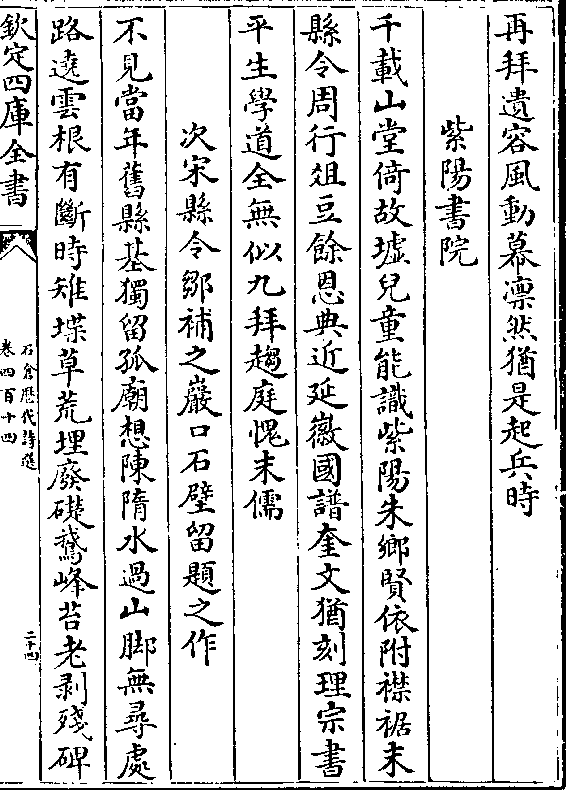 再拜遺容風動幕凛然猶是起兵時
紫陽書院
千載山堂倚故墟兒童能識紫陽朱鄉賢依附襟裾末
縣令周行俎豆餘恩典近延徽國譜奎文猶刻理宗書
平生學道全無似九拜趨庭愧末儒
次宋縣令鄒補之巖口石壁留題之作
不見當年舊縣基獨留孤廟想陳隋水過山脚無尋處
路遶雲根有斷時雉堞草荒埋廢礎鵞峰苔老剥殘碑
欽定四庫全書
石倉歷代詩選
卷四百十四
二十四